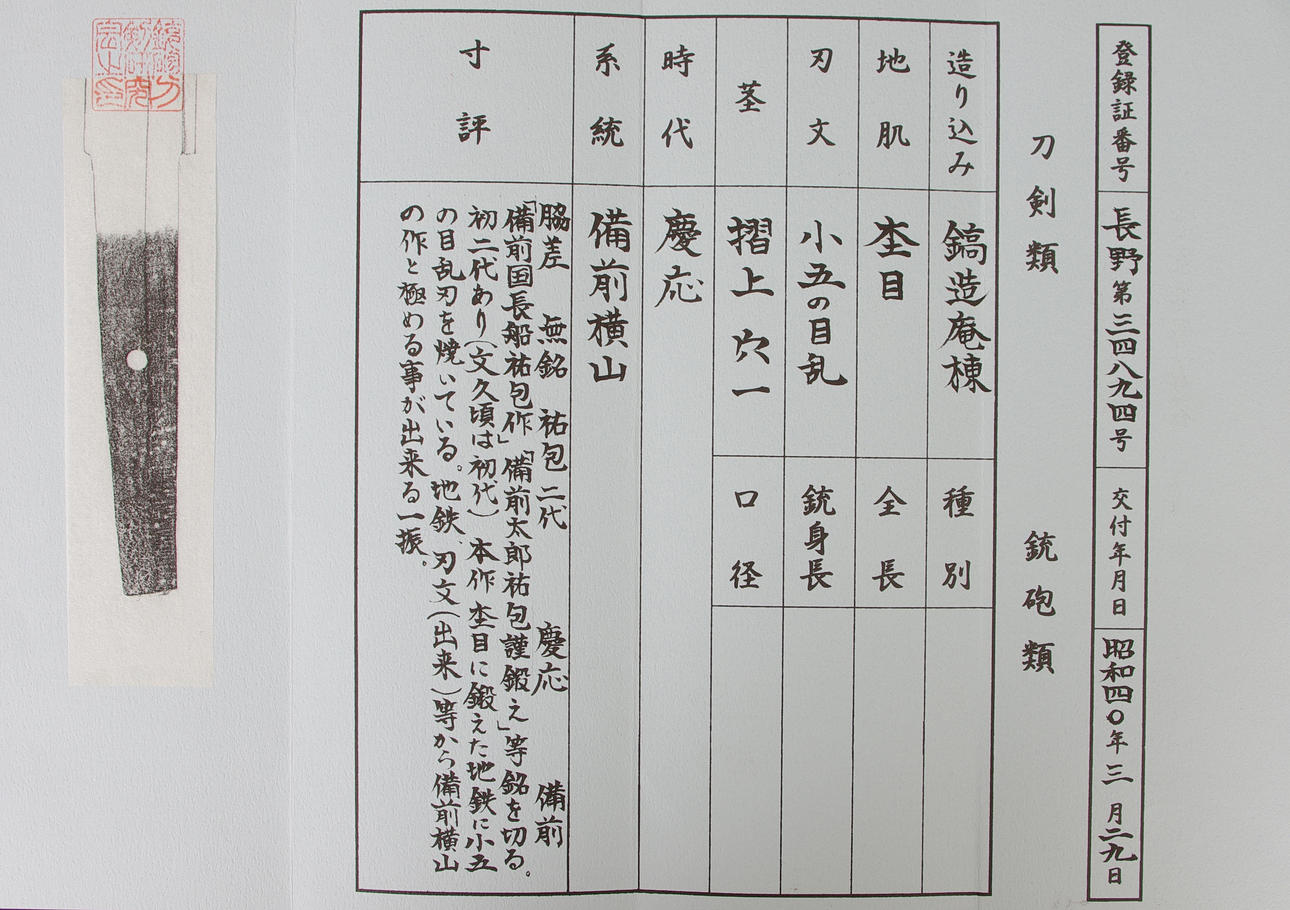 登録証番号 長野第三四八九四号 交付年月日 昭和四〇年三月二九日
刀剣類 銃砲類
造り込み 鎬造庵棟 種別
地肌 杢目 全長
刃文 小五の目乱 銃身長
茎 摺上 穴一 口径
時代 慶応
系統 備前横山
寸評
脇差 無銘 祐包二代 慶応 備前
「備前国長船祐包作」「備前太郎祐包謹鍛え」等銘を切る。
初二代あり(文久頃は初代)本作杢目に鍛えた地鉄に小五
の目乱刃を焼いている。地鉄、刃文(出来)等から備前横山
の作と極める事が出来る一振。